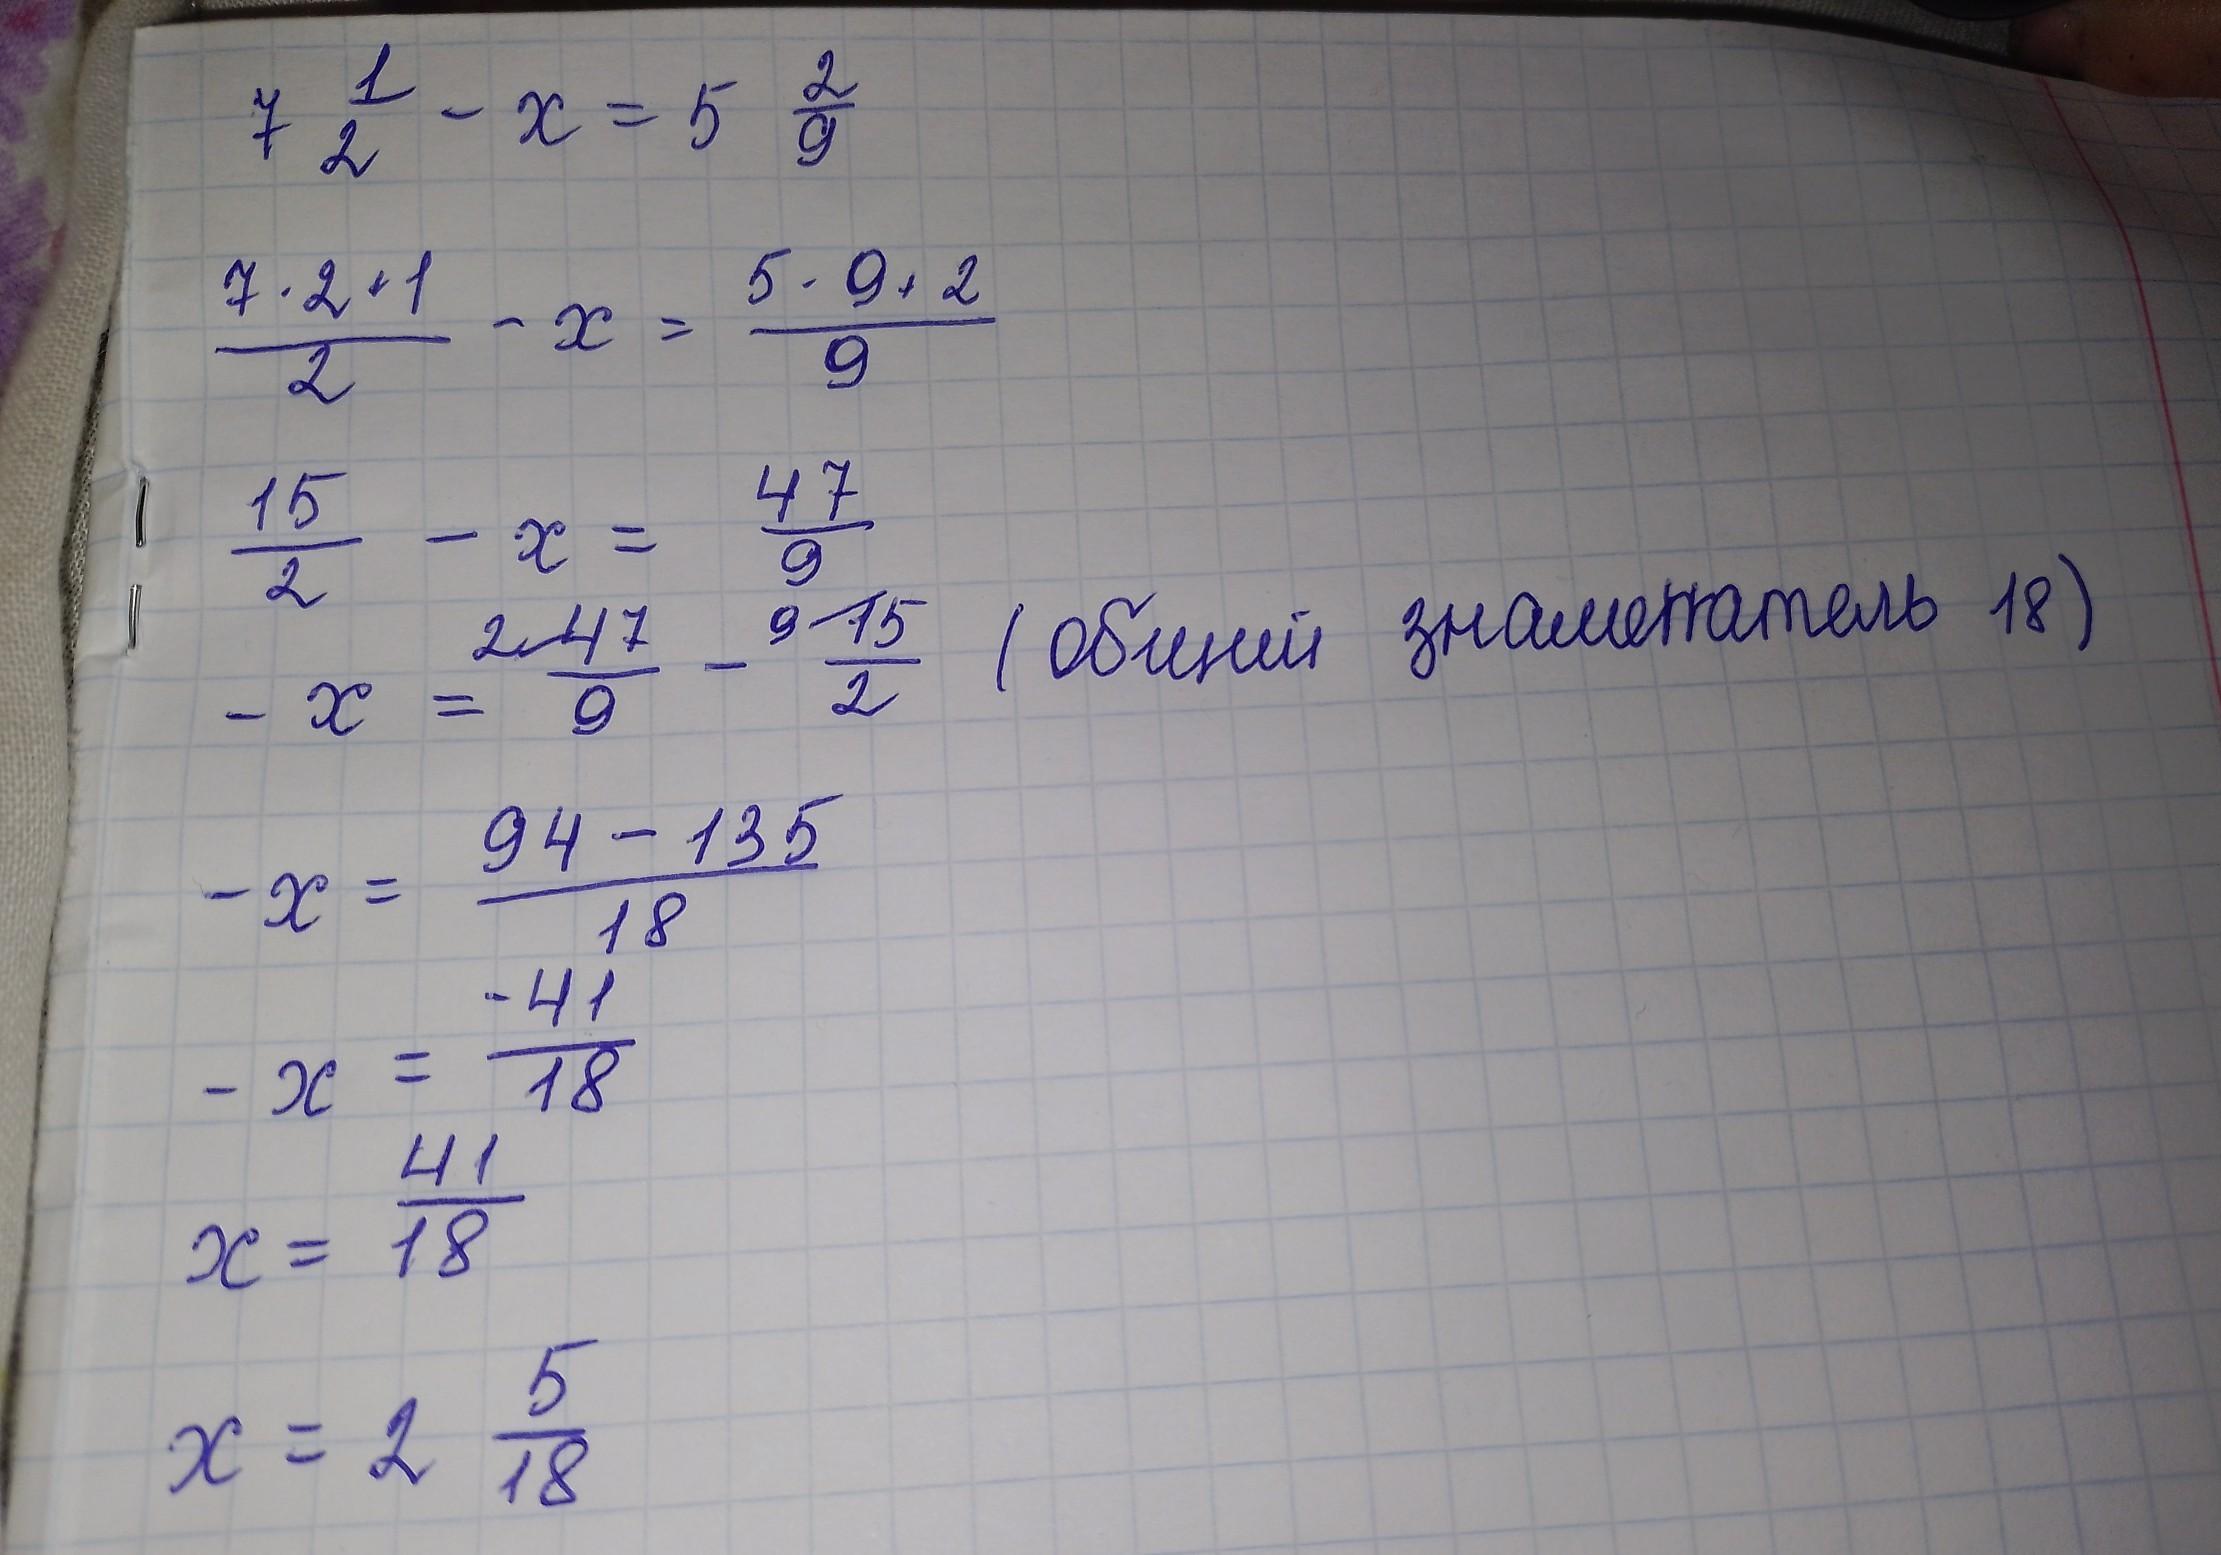 7 1/2 - x = 5 2/9
7·2+1/2 - x = 5·9+2/9
15/2 - x = 47/9
- x = 2 47/9 - 9 15/2 (общий знаменатель 18)
- x = 94 - 135/18
- x = -41/18
x = 41/18
x = 2 5/18